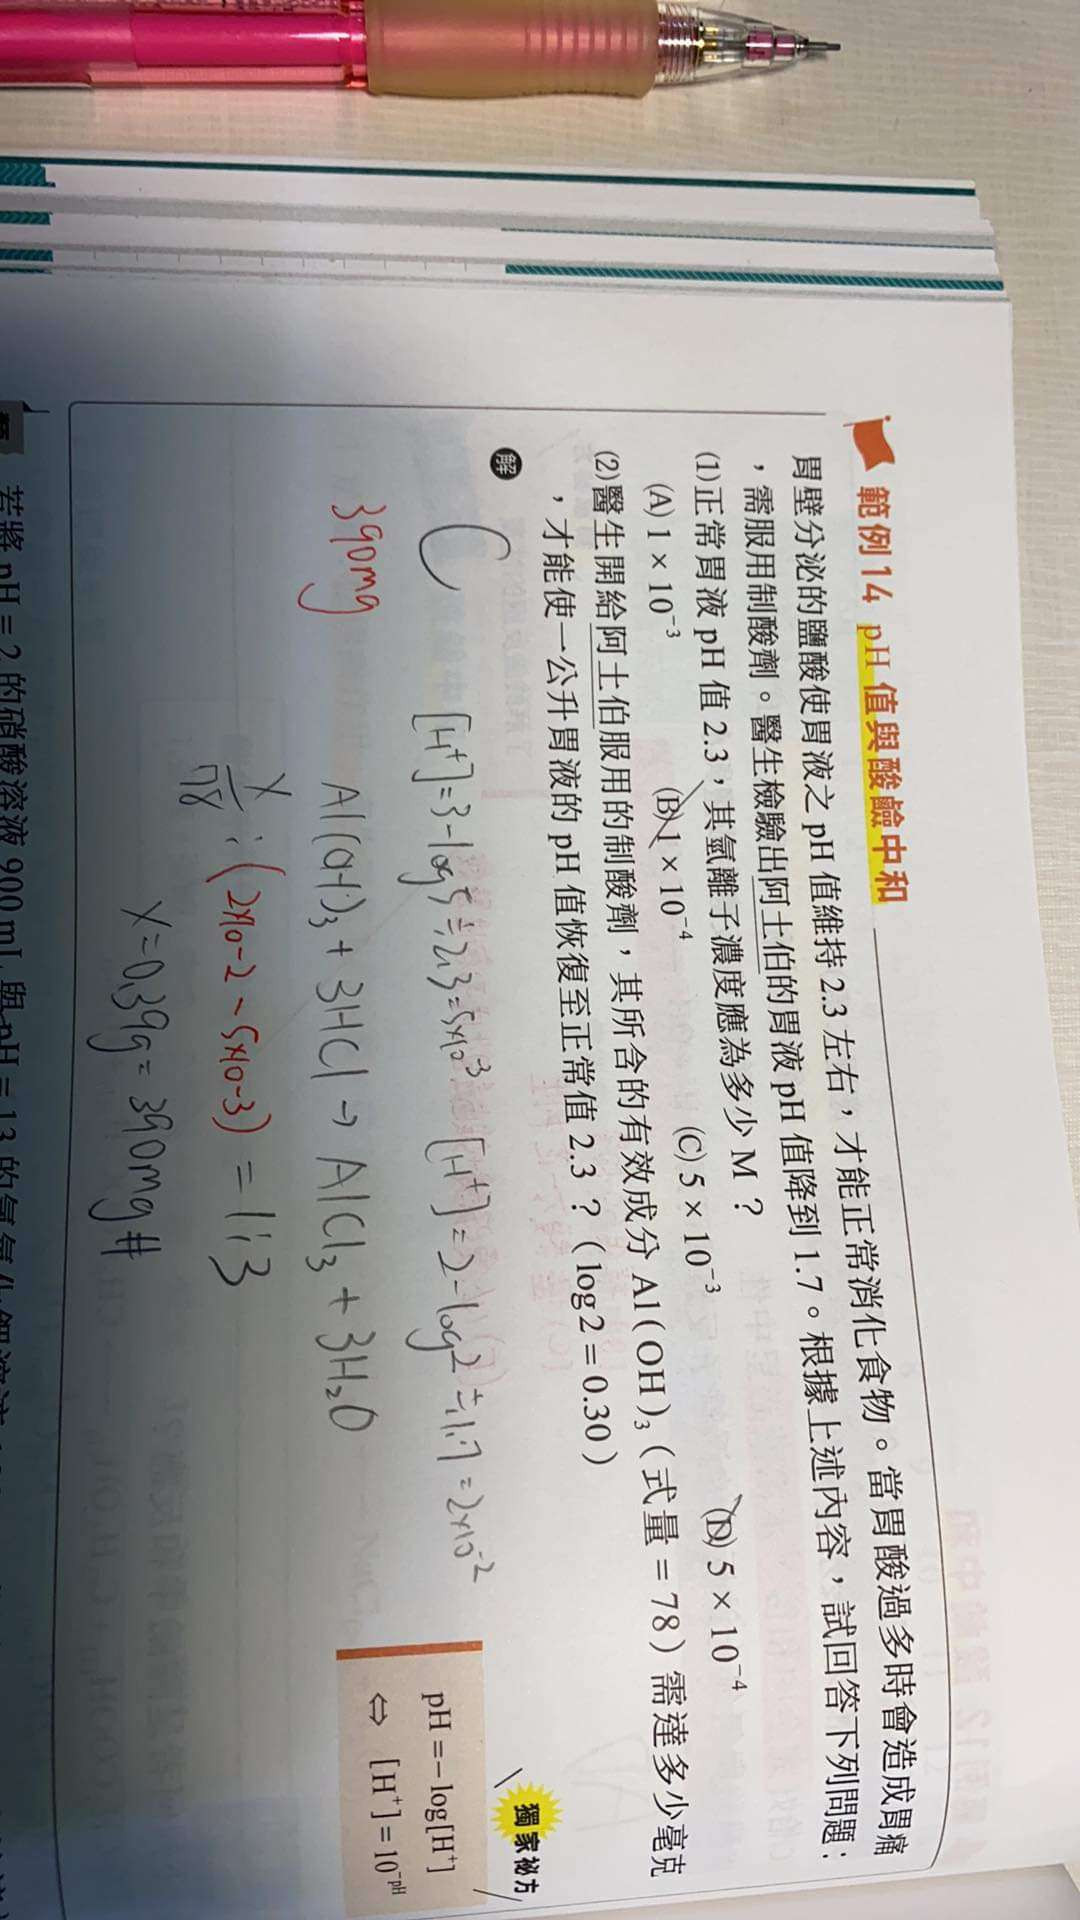 範例14 pH 值與酸鹼中和
胃壁分泌的鹽酸使胃液之 pH 值維持 2.3 左右，才能正常消化食物。當胃酸過多時會造成胃痛
，需服用制酸劑。醫生檢驗出阿土伯的胃液 pH 值降到 1.7。根據上述內容，試回答下列問題：
(1)正常胃液 pH 值 2.3，其氫離子濃度應為多少 M？
(A) 1 × 10⁻³ (B) 1 × 10⁻⁴ (C) 5 × 10⁻³ (D) 5 × 10⁻⁴
(2)醫生開給阿土伯服用的制酸劑，其所含的有效成分 Al(OH)₃（式量＝78）需達多少毫克
，才能使一公升胃液的 pH 值恢復至正常值 2.3？（log2＝0.30）
解
獨家祕方
pH＝−log[H⁺]
⇔ [H⁺]＝10⁻ᵖᴴ
C [H⁺]=3-log5≒2.3=5x10⁻³ [H⁺]=2-log2≒1.7=2x10⁻²
390mg
Al(OH)₃+3HCl→AlCl₃+3H₂O
x/78:(2x10-2-5x10-3)=1:3
x=0.39g=390mg#
若將 pH＝2 的硝酸溶液 900 mL 與 pH＝13 的氫氧化